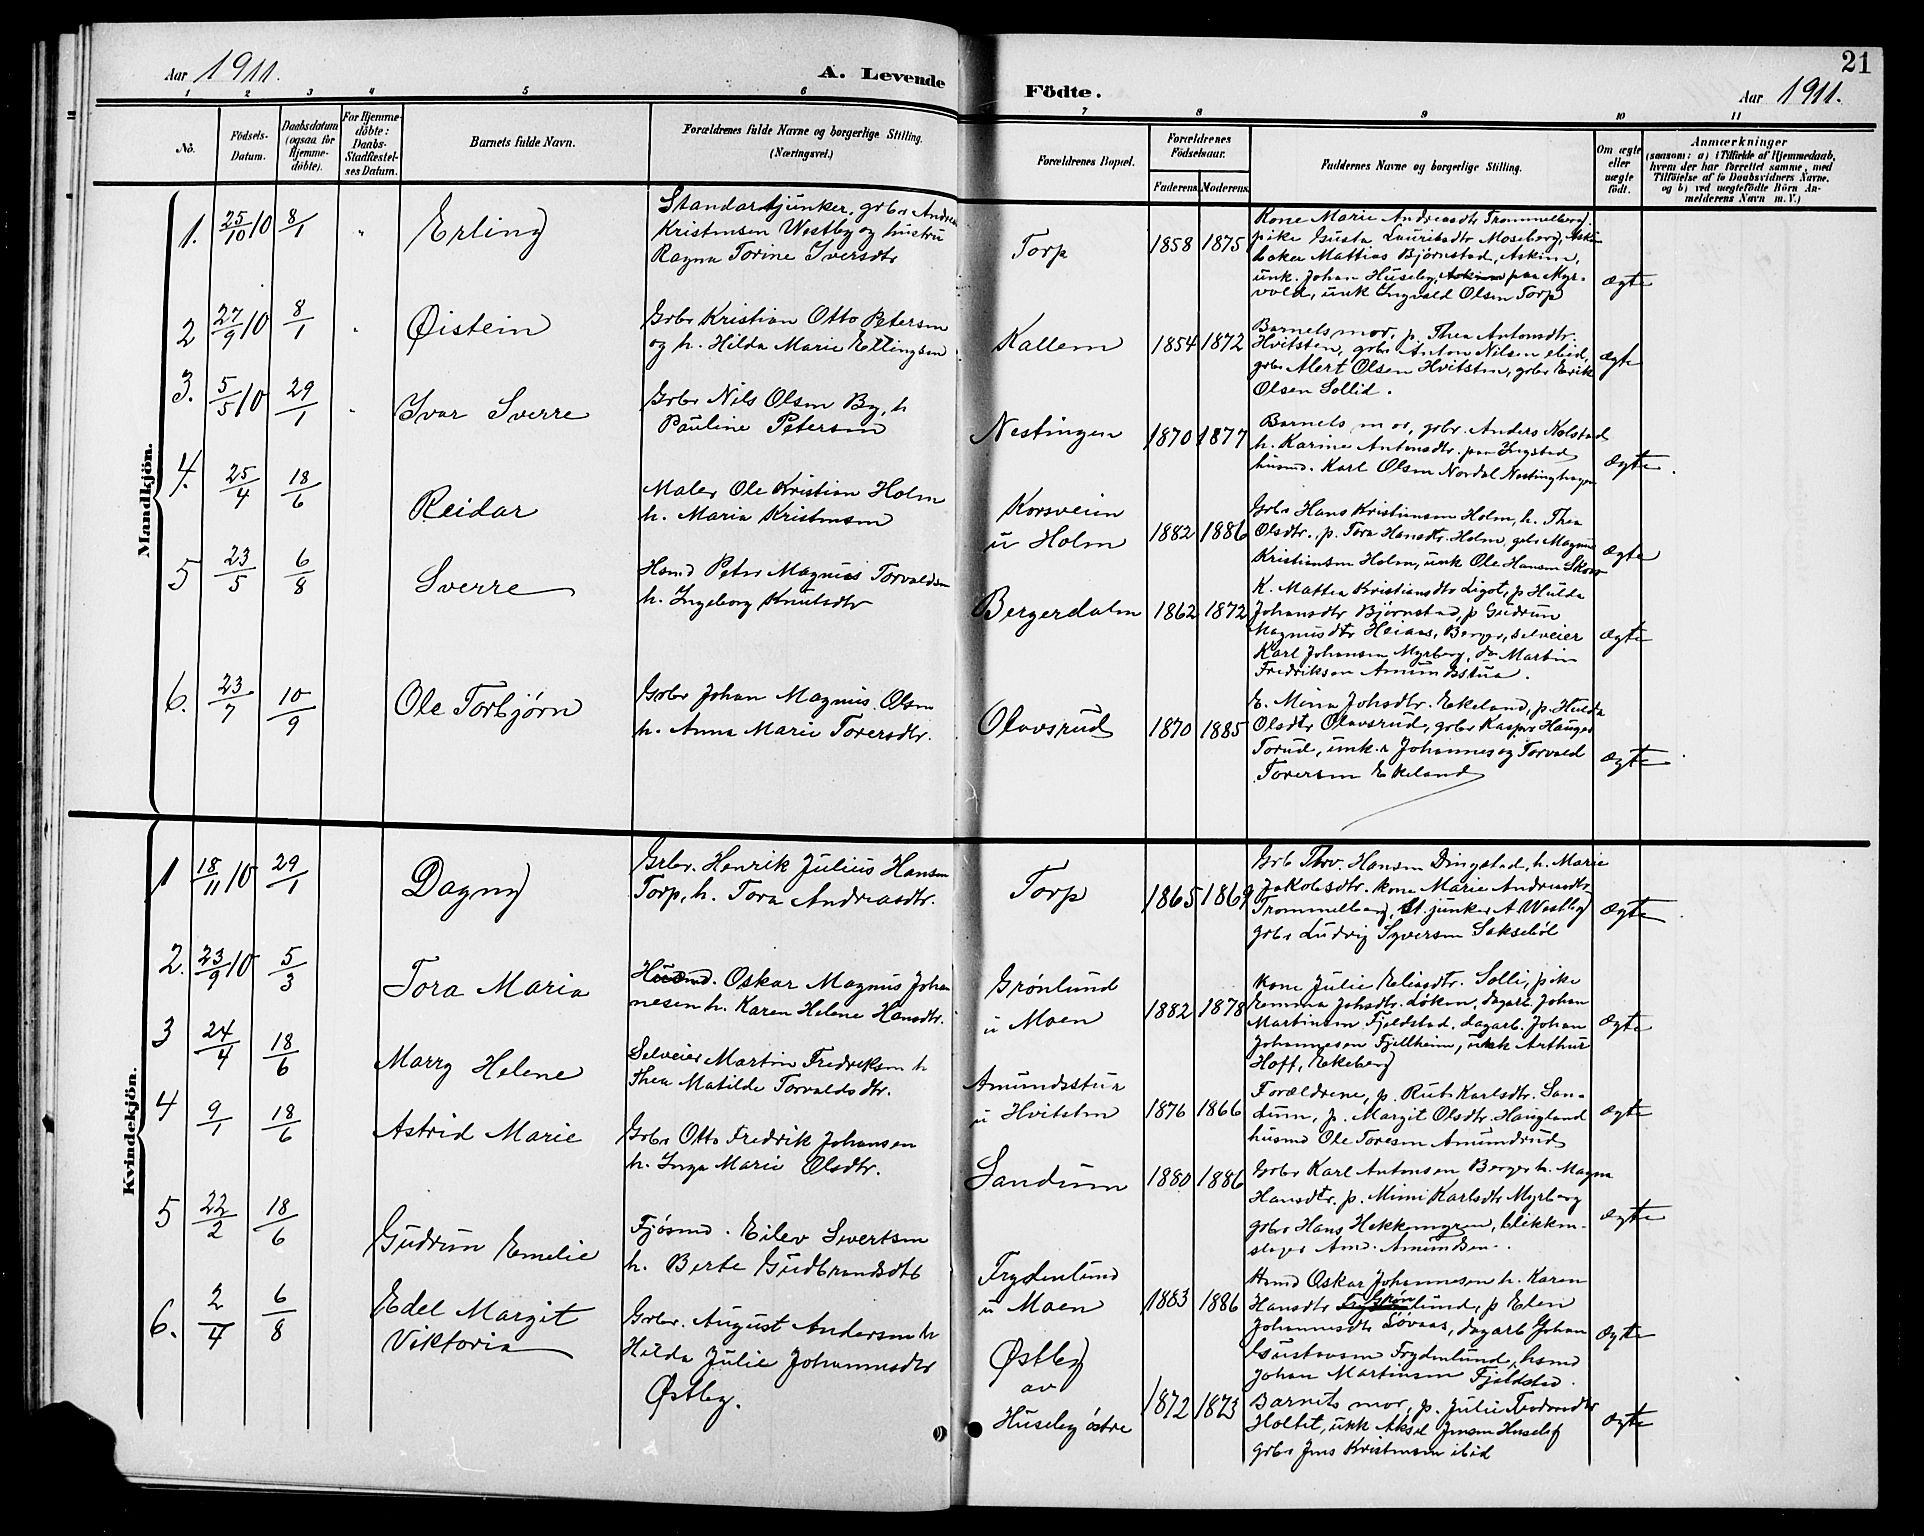 21
Aar 1911.
A. Levende
Födte.
Aar 1911.
1 2 3 4 5 6 7 8 9 10 11
No.
Födsels-
Datum.
Daabsdatum
(ogsaa for
Hjemme-
döbte).
For Hjemme-
döbte:
Daabs-
Stadfæstel-
ses Datum.
Barnets fulde Navn.
Forældrenes fulde Navne og borgerlige Stilling.
(Næringsvei.)
Forældrenes Bopæl.
Forældrenes
Födselsaar.
Faderens. Moderens.
Faddernes Navne og borgerlige Stilling.
Om ægte
eller
uægte
födt.
Anmærkninger
(saasom: a) i Tilfælde af Hjemmedaab,
hvem der har forrettet samme, med
Tilföielse af to Daabsvidners Navne,
og b) ved uegtefödte Börn An-
melderens Navn m. V.)
Mandkjön.
1. 25/10 10 8/1 "
Erling
Standartjunker, grbr Andreas
Kristensen Westby og hustru
Ragna Torine Iversdtr
Torp
1858 1875
Kone Marie Andreasdtr Trommelberg
pike Gusta Lauritsdtr Moseberg, Askim
baker Mattias Bjørnstad, Askim,
unk. Johan Huseby, Askim paa Myr-
vold, unk Ingvald Olsen Torp
ægte
2 27/9 10 8/1
Øistein
Grbr Kristian Otto Petersen
og h. Hilda Marie Ellingsen
Kallem
1854 1872
Barnets mor, p. Thea Antonsdtr.
Hvitsten, grbr Anton Nilsen ibid,
grbr Mert Olsen Hvitsten, grbr Erik
Olsen Sollid.
ægte
3. 5/5 10 29/1
Ivar Sverre
Grbr Nils Olsen By, h
Pauline Petersen
Nestingen
1870 1877
Barnets mor, grbr. Anders Kolstad
h. Karine Antonsdtr. paa Ingstad
husmd. Karl Olsen Nordal Nestinghagen
ægte.
4. 25/4 18/6
Reidar
Maler Ole Kristian Holm
h. Maria Kristensen
Korsveien
u Holm
1882 1886
Grbr Hans Kristiansen Holm, h. Thea
Olsdtr. p. Tora Hansdtr. Holm, grbr Magnus
Kristiansen Holm, unk Ole Hansen Skow
ægte
5 23/5 6/8
Sverre
Hsmd Peter Magnus Torvaldsen
h. Ingeborg Knutsdtr
Bergerdalen
1862 1872
K. Mattea Kristiansdtr Ligot, p Hulda
Johansdtr Bjørnstad, p Gudrun
Magnusdtr Heiaas, Berger, selveier
Karl Johansen Myrberg, do Martin
Fredriksen Amundsstua.
ægte
6. 23/7 10/9
Ole Torbjørn
Grbr Johan Magnus Olsen
h. Anna Marie Toversdtr.
Olavsrud
1870 1885
E. Mina Johsdtr. Ekeland, p. Hulda
Olsdtr Olavsrud, grbr Kasper Hauger
Torud, unk.r Johannes og Torvald
Toversen Ekeland
ægte
Kvindekjön.
1 18/11 10 29/1
Dagny
Grbr. Henrik Julius Hansen
Torp, h. Tora Andreasdtr.
Torp
1865 1869
Grb Thv. Hansen Dingstad, h. Marie
Jakobsdtr. kone Marie Andreasdtr
Trommelberg, St.junker A Westby
grbr Ludvig Syversen Saksebøl
ægte
2. 23/9 10 5/3
Tora Maria
Husmd. Oskar Magnus Johan
nesen h. Karen Helene Hansdtr.
Grønlund
u Moen
1882 1878
Kone Julie Eliasdtr. Solli, pike
Emma Johsdtr. Løken, dagarb. Johan
Martinsen Fjeldstad, dagarb. Johan
Johannesen Fjellheim, unk Arthur
Hoff, Ekeberg
ægte
3 24/4 18/6
Marry Helene
Selveier Martin Fredriksen h
Thea Matilde Torvaldsdtr.
Amundsstua
u Hvitsten
1876 1866
Forældrene, p. Rut Karlsdtr. San-
dum, p. Margit Olsdtr. Haugland
husmd Ole Toresen Amundrud
ægte
4 9/1 18/6
Astrid Marie
Grbr Otto Fredrik Johansen
h. Inga Marie Olsdtr.
Sandum
1880 1886
Grbr Karl Antonsen Berger h. Magna
Hansdtr. p. Mimi Karlsdtr Myrberg
grbr Hans Hekkemgren, blikken-
slager Amd. Amundsen.
ægte
5 22/2 18/6
Gudrun Emelie
Fjøsmd. Eilev Sivertsen
h. Berte Gudbrandsdtr
Frydenlund
u Moen
1883 1886
Hsmd Oskar Johannesen h. Karen
Hansdtr Grønlund, p Elen
Johannesdtr Løvaas, dagarb Johan
Gustavsen Frydenlund, hsmd
Johan Martinsen Fjeldstad.
ægte
6. 2/4 6/8
Edel Margit
Viktoria
Grbr. August Andersen h
Hilda Julie Johannesdtr
Østby.
Østby
av
Huseby østre
1872 1873
Barnets mor, p. Julie
Holtet, unk Aksel Jensen Huseby
grbr Jens Kristensen ibid
ægte